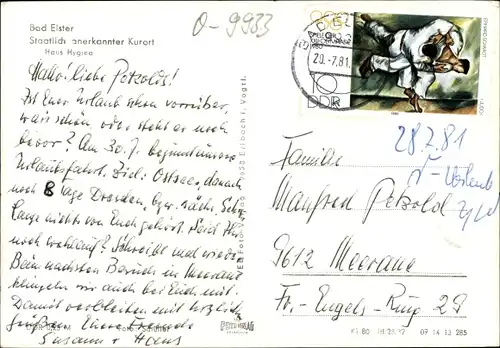 Bad Elster
Staatlich anerkannter Kurort
Haus Hygiea
O-9933
Hallo! liebe Petzolds!
Ist Euer Urlaub schon vorrüber,
war's schön, oder steht er noch
bevor? Am 30.7. beginnt unsere
Urlaubsfahrt. Ziel: Ostsee, danach
noch 8 Tage Dresden bzw. nähe. Schon
lange nichts von Euch gehört. Seid Ihr
noch wohlauf? Schreibt mal wieder.
Beim nächsten Besuch in Meerane
klingeln wir auch bei Euch mit.
Damit verbleiben mit herzlichen
Grüßen Eure Freunde
Susann + Hans
VEB Foto-Verlag 9653 Erlbach i. Vogtl.
20.-7.81
10
DDR
1980
28.7.81
Familie
Manfred Petzold
9612 Meerane
Fr.-Engels-Ring 29
07 14 13 285